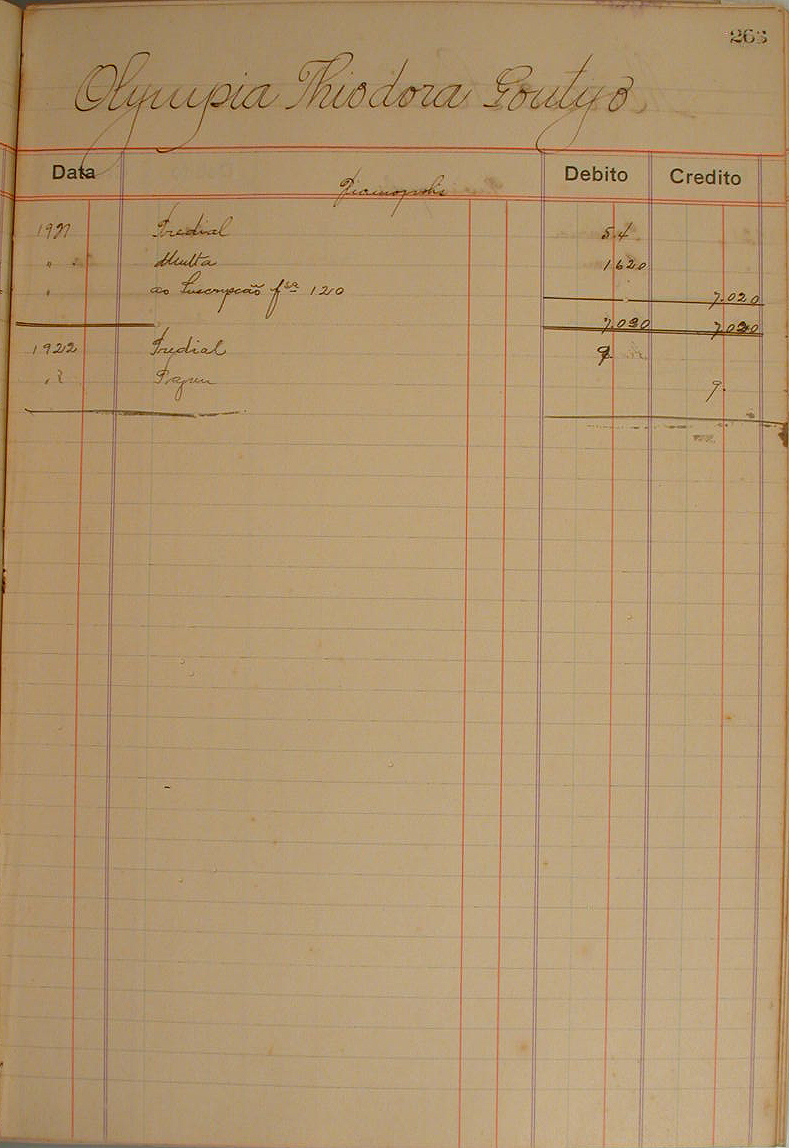 263
Olympia Thiodora
Data Debito Credito
Predial 5.4
" Multa 1620
" ao Inscripção fsa 120 7.020
7.020 7,020
1922 Predial 9
" Pagou 9.